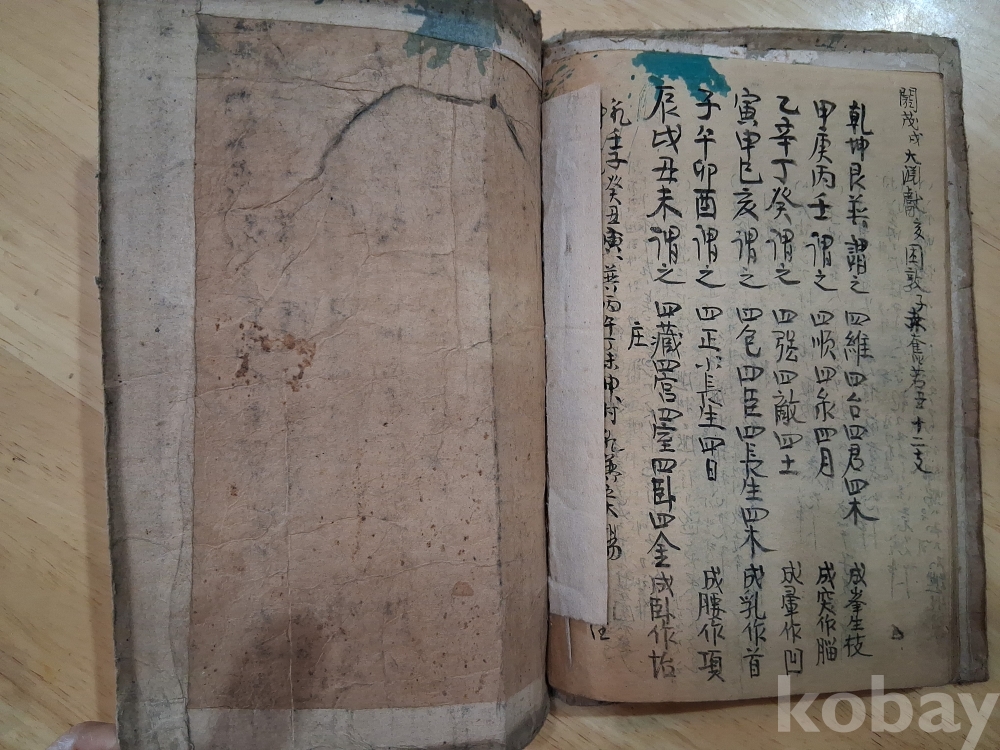 閹茂戌 大淵獻亥 困敦子 赤奮若丑 十二支
乾坤艮巽謂之 四維四台四君四木 成峯生枝
甲庚丙壬謂之 四順四 四月 成突作腦
乙辛丁癸謂之 四強四敵四土 成暈作凹
寅申巳亥謂之 四包四臣四長生四木 成乳作首
子午卯酉謂之 四正 長生四日 成腰作項
辰戌丑未謂之 四藏四 四 四臥四金成臥作
庄
壬子癸丑寅 丙午丁未申
kobay